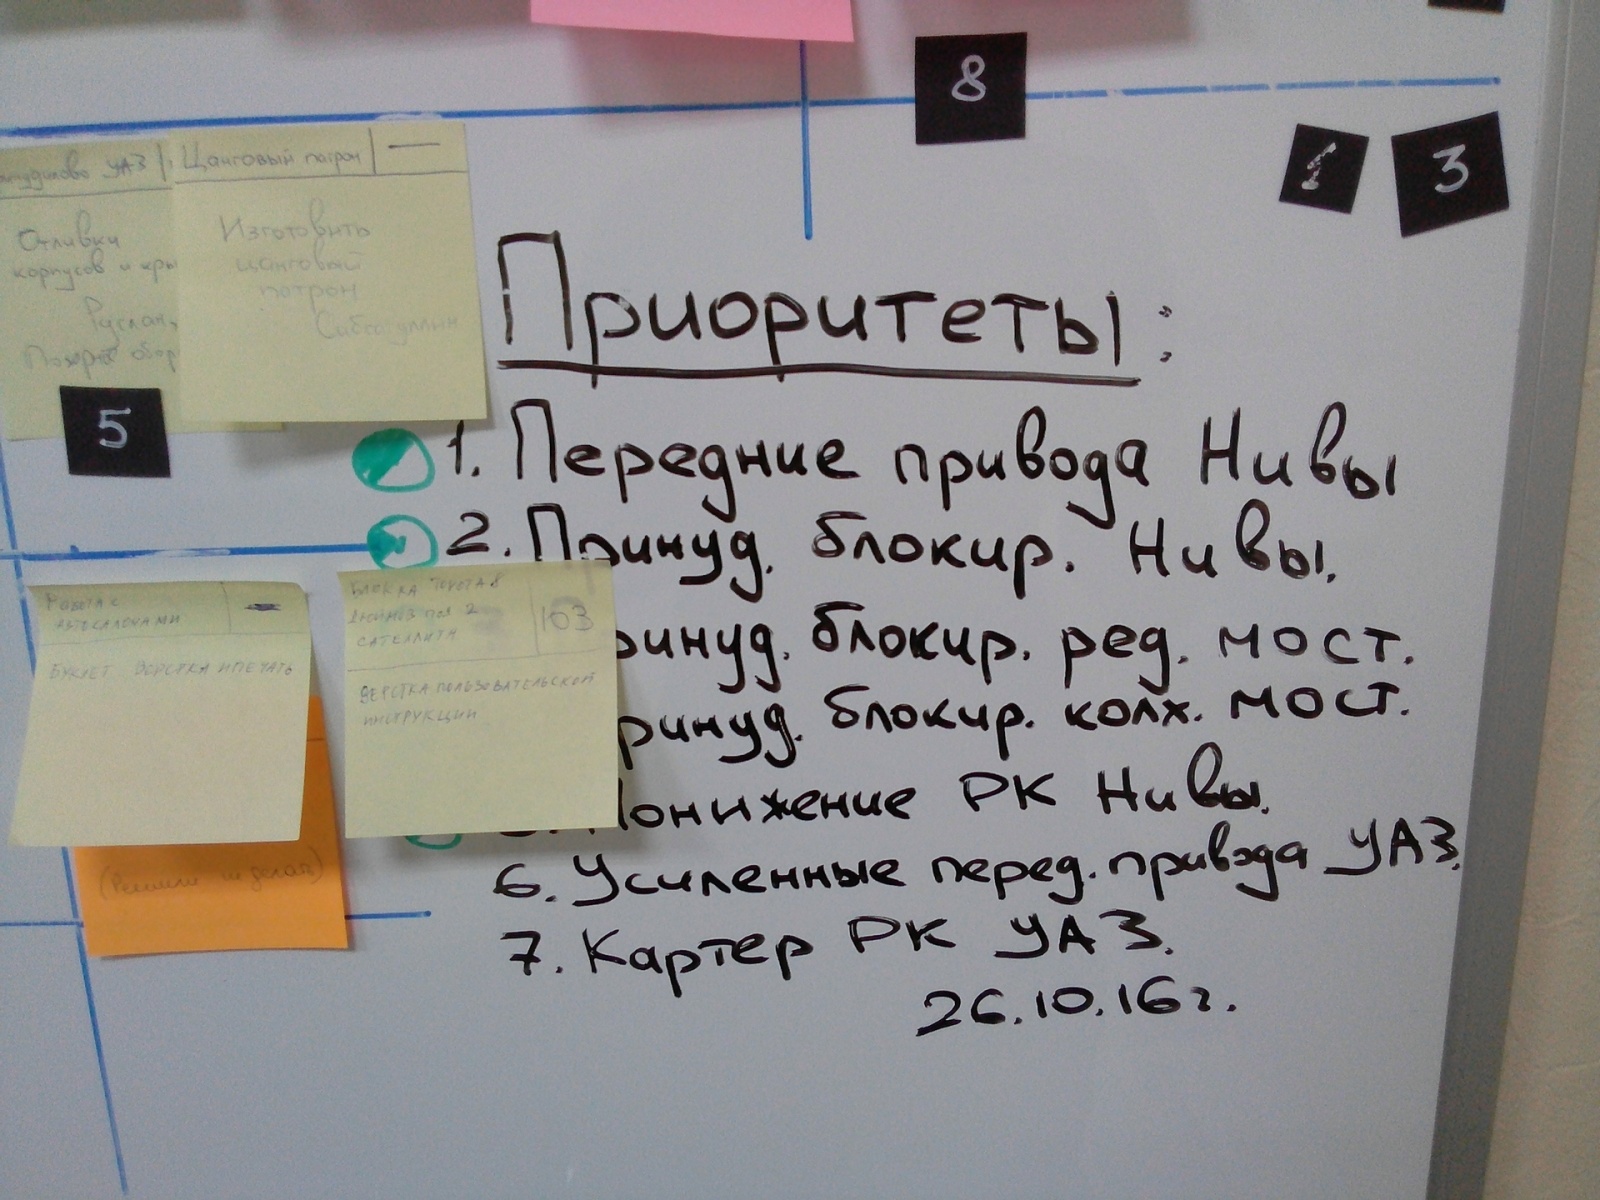 8
1
3
УАЗ
Цанговый патрон —
Отливки
корпусов и кры
Руслан,
Изготовить
цанговый
патрон
5
Приоритеты:
1. Передние привода Нивы
2. Принуд. блокир. Нивы.
ринуд. блокир. ред. мост.
ринуд. блокир. колх. мост.
Понижение РК Нивы.
6. Усиленные перед. привода УАЗ.
7. Картер РК УАЗ.
26.10.16г.
Работа с
автосалонами
Буклет верстка и печать
Блок-ка Тойота 8
дюймов под 2
сателлита
103
Верстка пользовательской
инструкции
(Решили не делать)